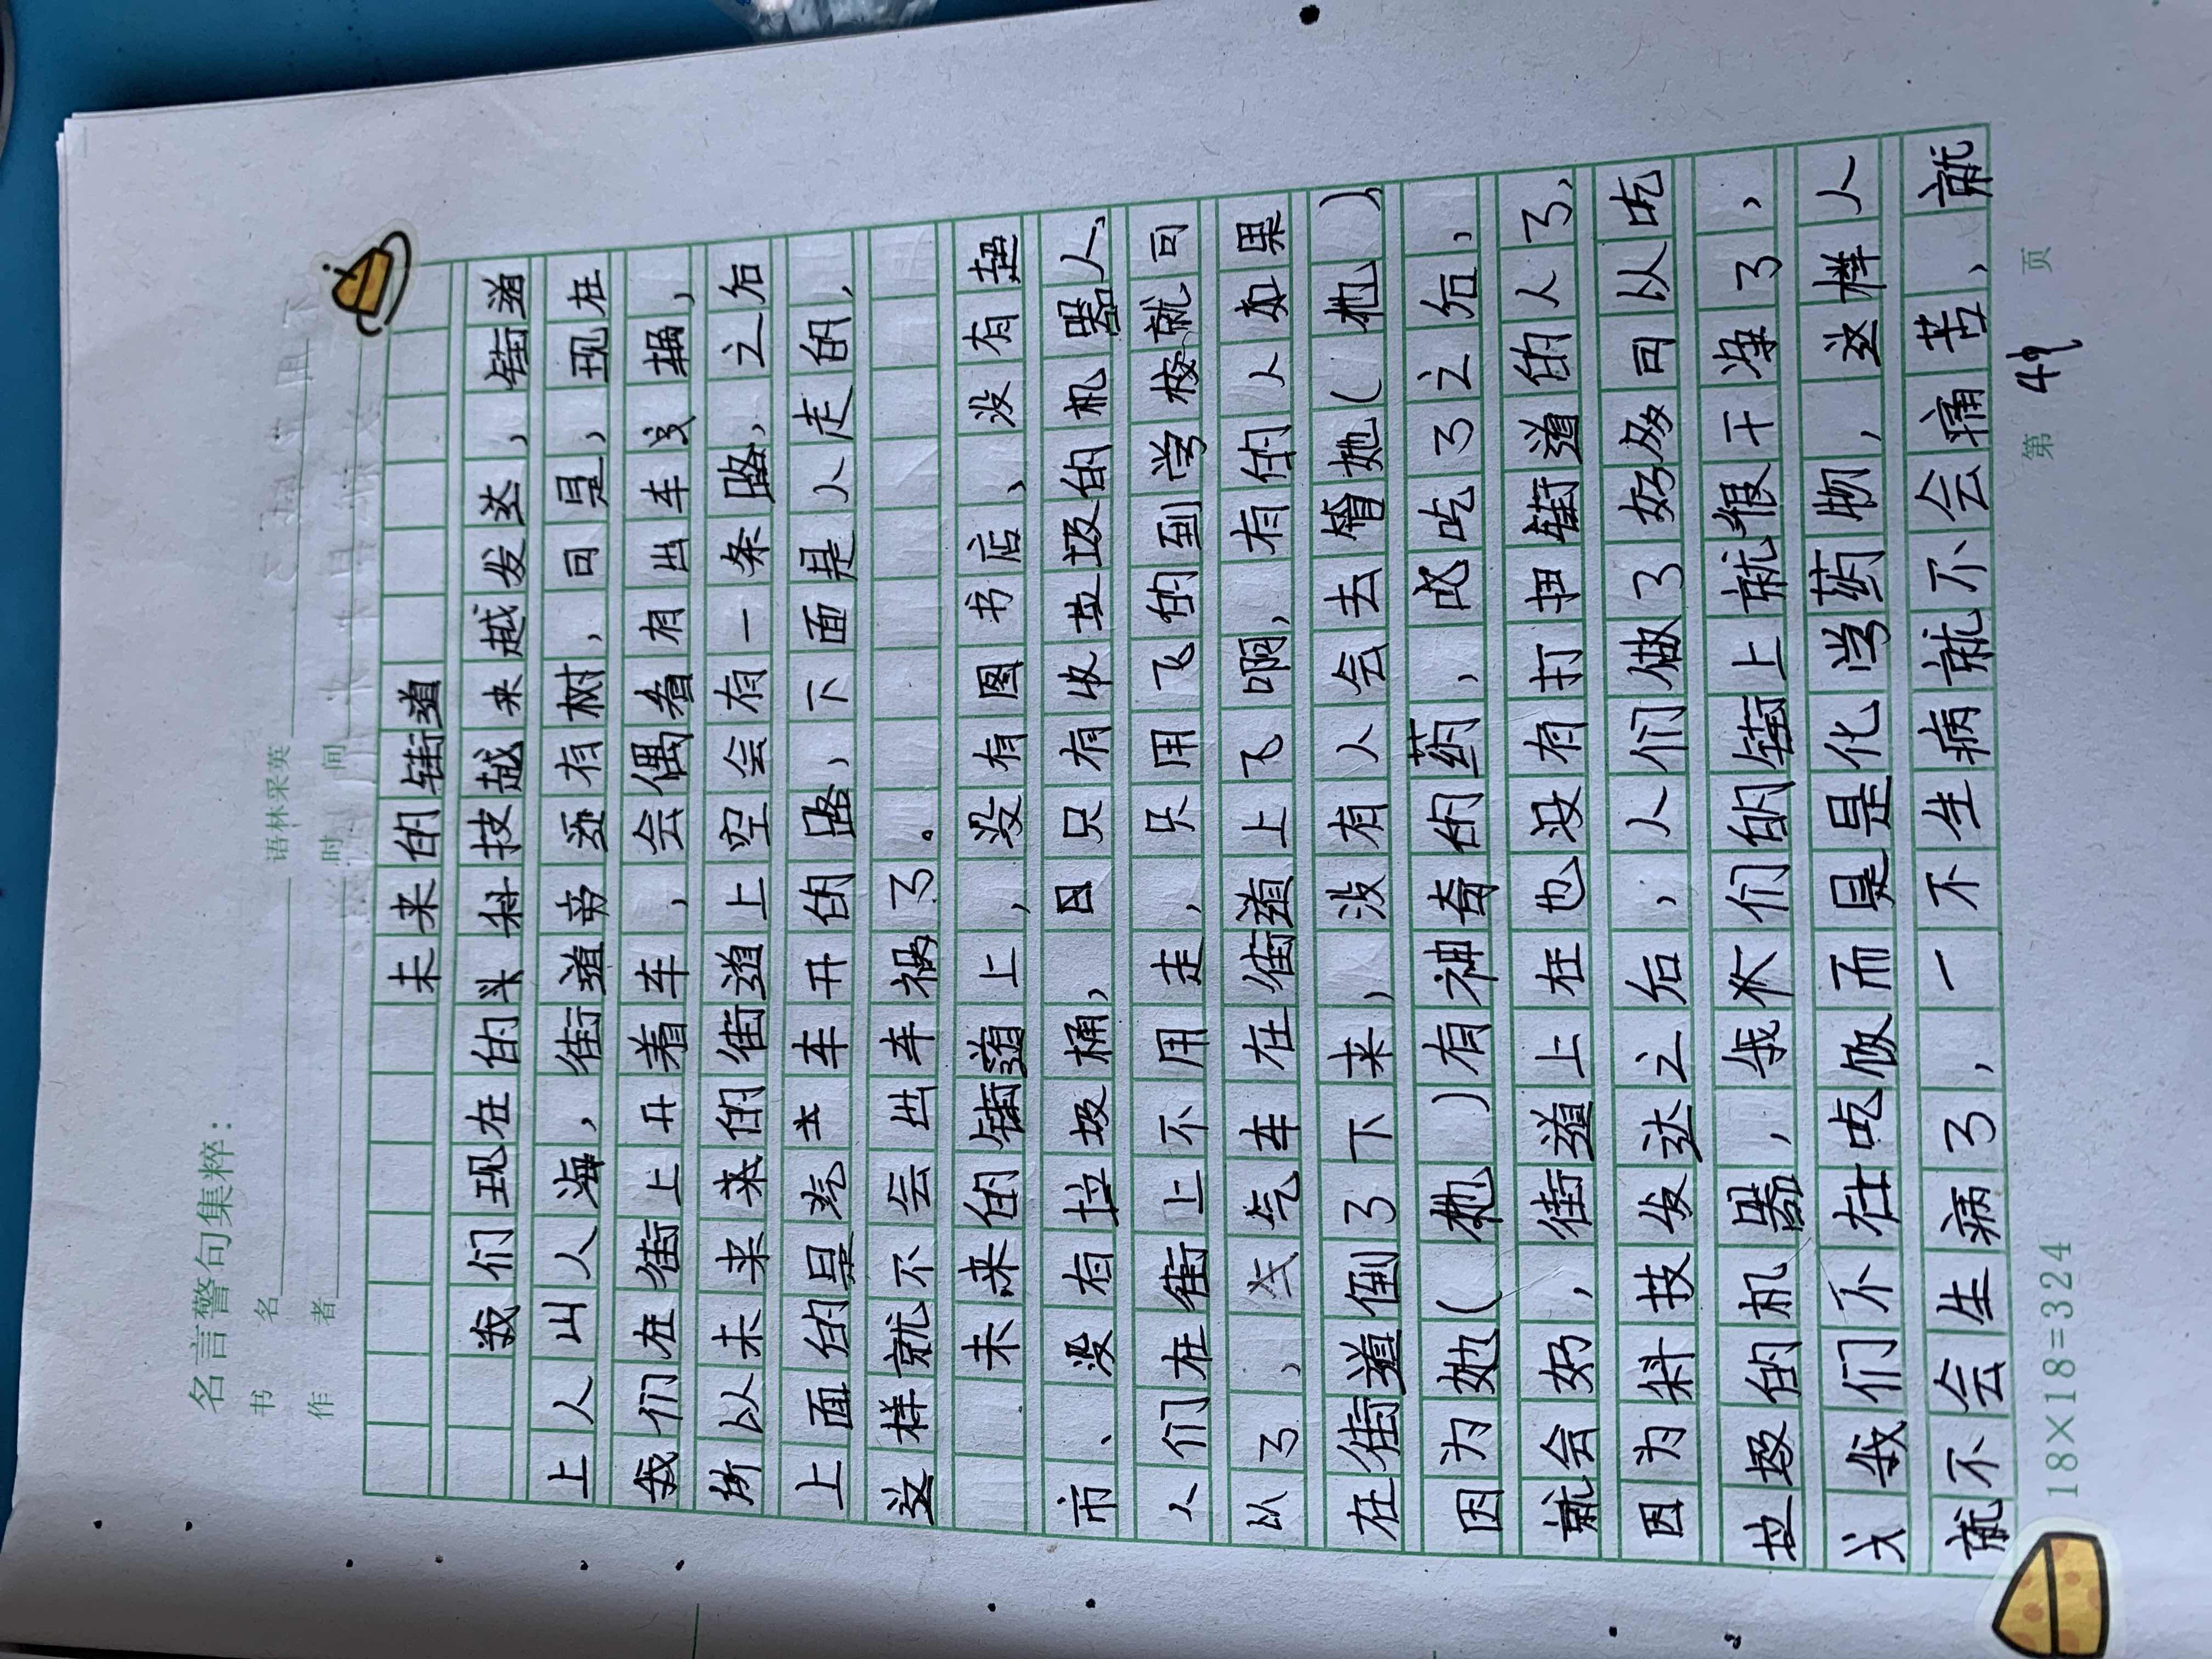 名言警句集粹：
书 名 语林采英
作 者 时 间
未来的街道
我们现在的头科技越来越发达，街道
上人山人海，街道旁还有树，可是，现在
我们在街上开着车，会偶看有出车没撞，
所以未来来的街道上空会有一条路，之后
上面的是汽车开的路，下面是人走的，
这样就不会出车祸了。
未来的街道上，没有图书店、没有超
市、没有垃圾桶，只有收垃圾的机器人，
人们在街上不用走，只用飞的到学校就可
以了，气车在街道上飞啊，有的人如果
在街道倒了下来，没有人会去管她（他）
因为她（他）有神奇的药，吃了之后，
就会好，街道上在也没有打扫街道的人了，
因为科技发达之后，人们做了好多可以吃
垃圾的机器，我们的街上就很干净了，
我们不在吃饭而是是化学药物，这样人
就不会生病了，一不生病就不会痛苦，就
18×18=324 第 49 页